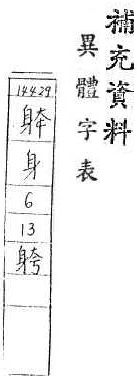 補充資料
異體字表
14429
身
6
13